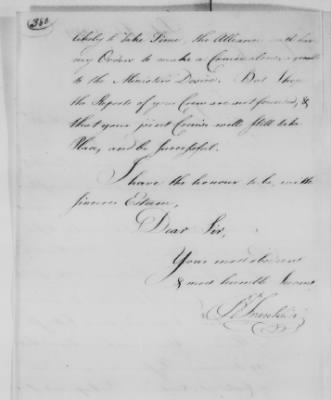 360
likely to take Time, the Alliance will have
my Orders to make a Cruise alone, agreeable
to the Ministers Desire. But I hope
the Reports of your Crew are not founded, &
that your joint Cruise will still take
Place, and be successful.
I have the honour to be, with
sincere Esteem,
Dear Sir,
Your most obedient
& most humble Servant
B Franklin